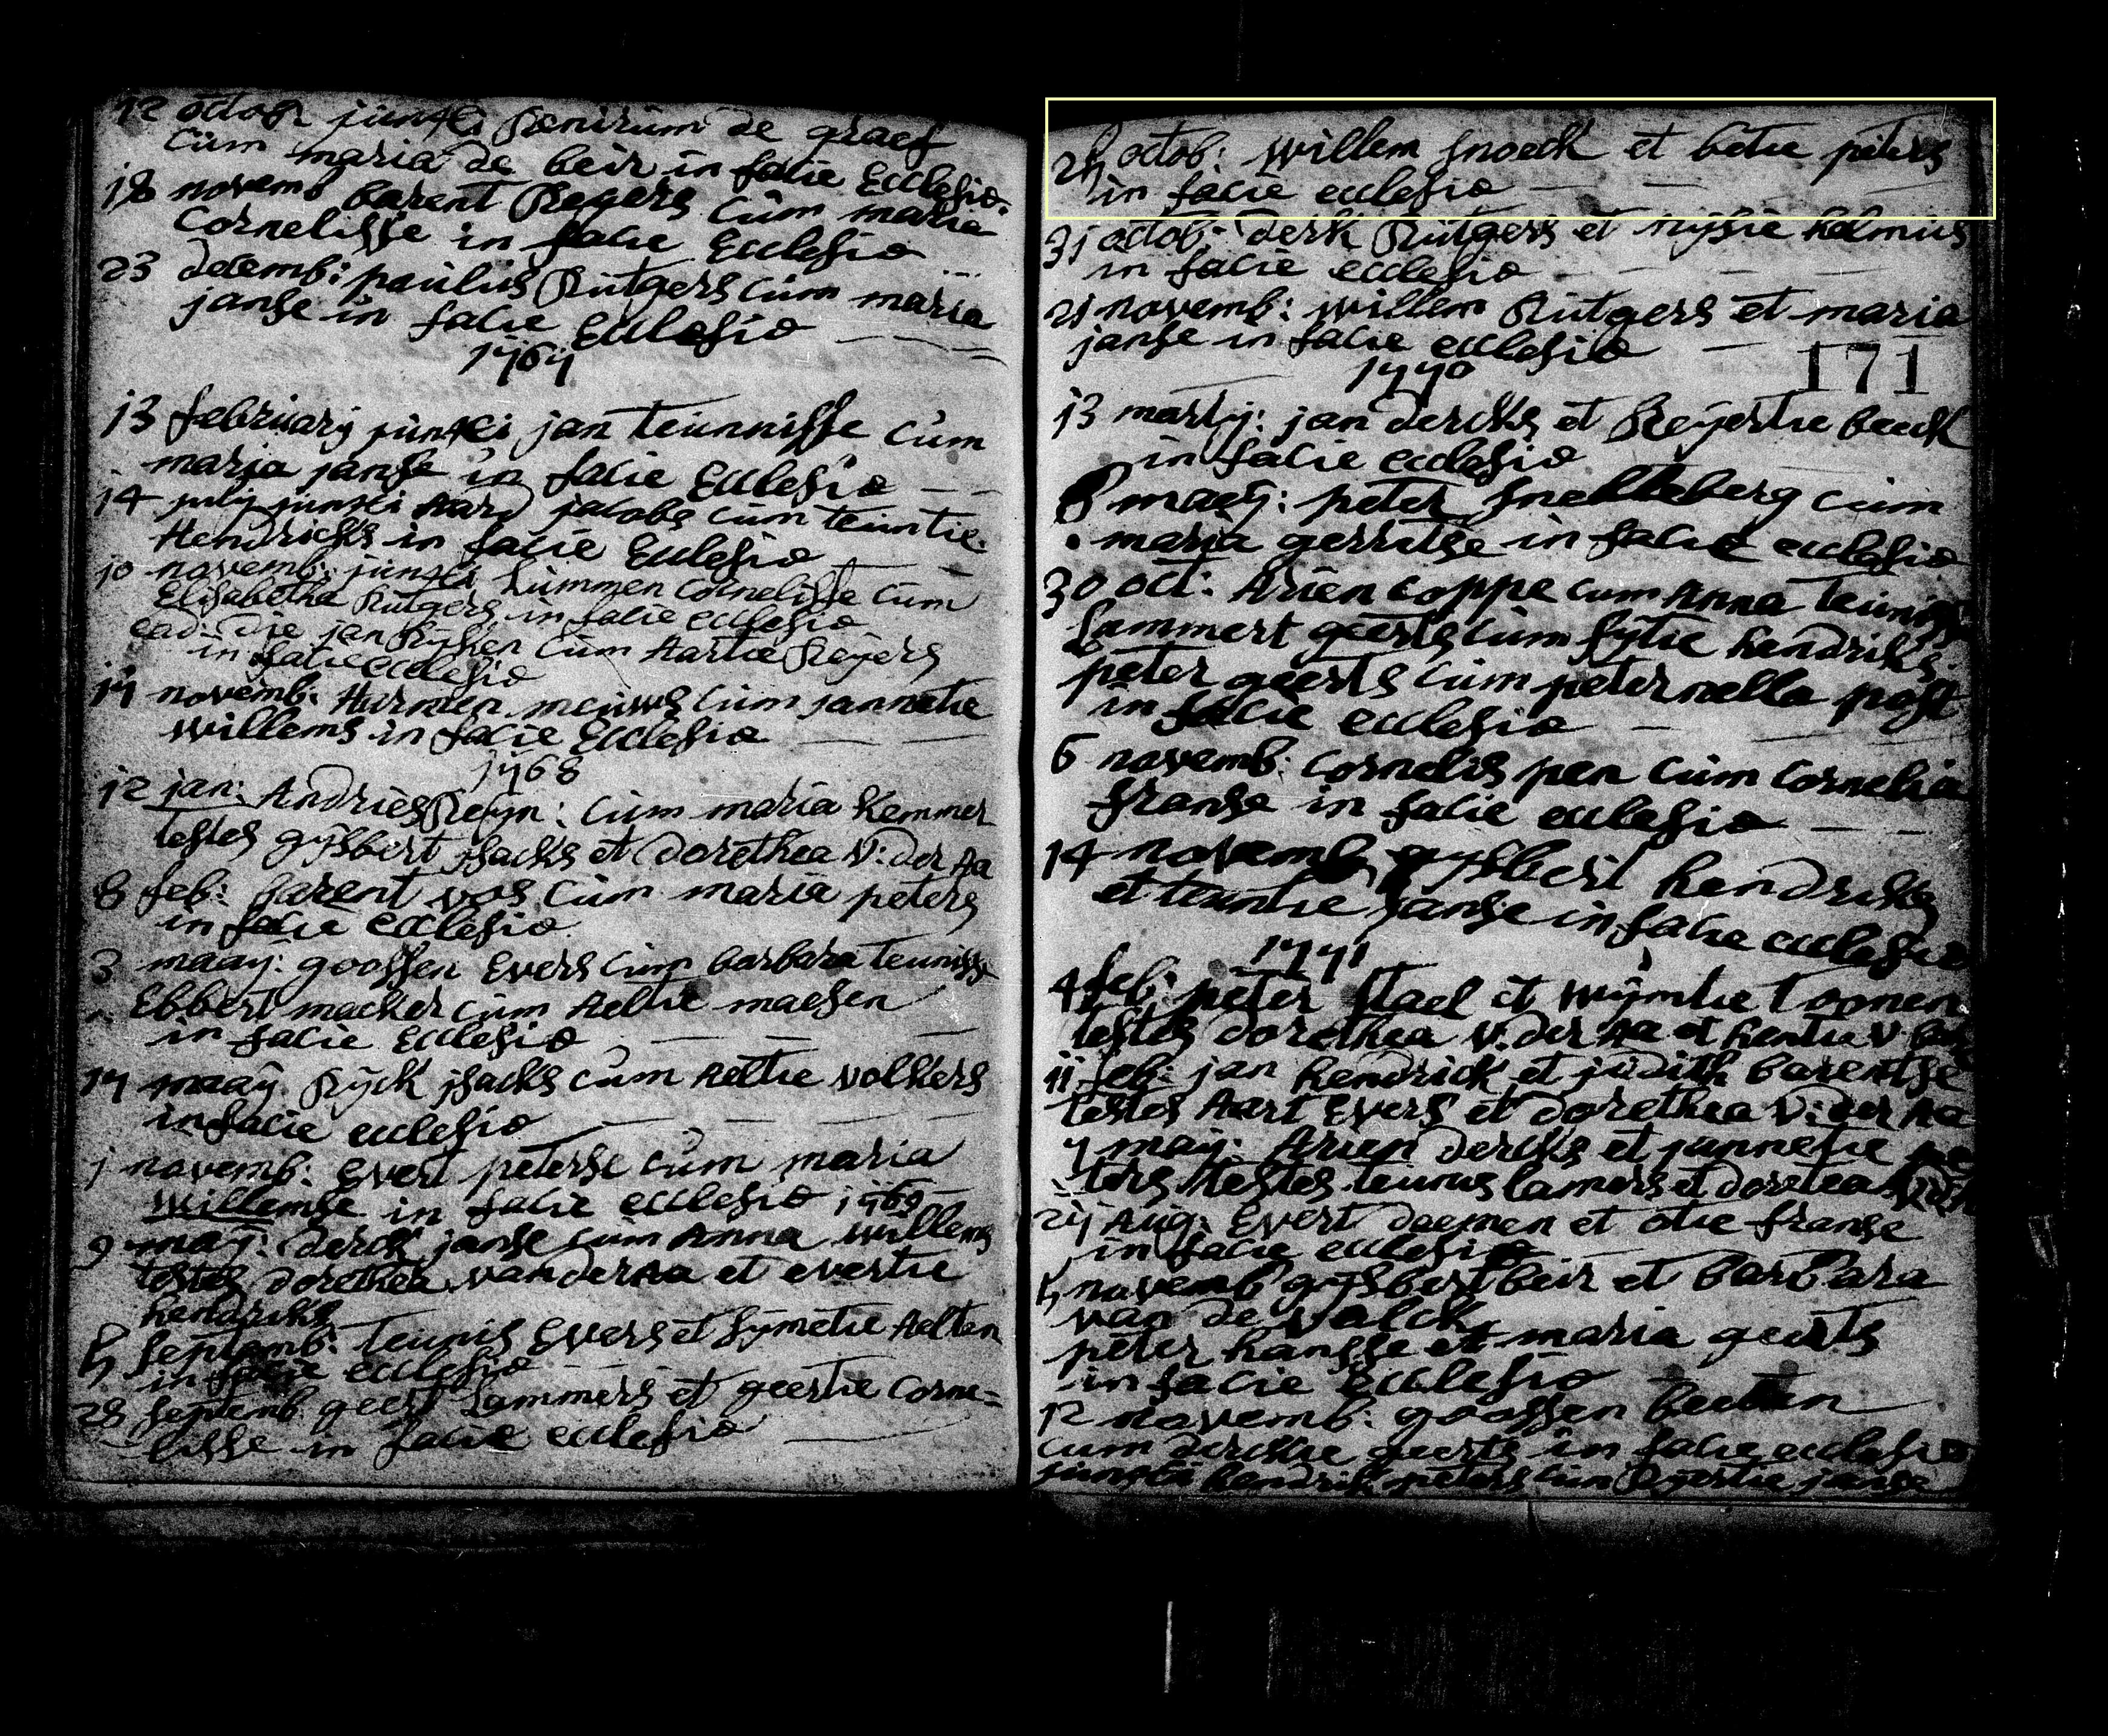 12 octob juncti Henricum de graef
cum maria de beir in facie Ecclesiæ.
18 novemb barent Regers cum maria
Cornelisse in facie Ecclesiæ
23 decemb: paulus Rutgers cum maria
janse in facie Ecclesiæ
1767
13 february juncti jan teunnisse cum
maria janse in facie Ecclesiæ
14 july juncti Aard jacobs cum teuntie
Hendricks in facie Ecclesiæ
10 novemb: juncti Lummen Cornelisse cum
Elisabetha Rutgers in facie ecclesiæ
ead: die jan Ryken cum Aartie Reyers
in facie ecclesiæ
17 novemb: Harmen meuws cum jannetie
willems in facie Ecclesiæ
1768
12 jan: Andries Reyn: cum maria Kemmer
testes gÿsbert jsacks et Dorethea v: der Aa
8 feb: barent vos cum maria peters
in facie ecclesiæ
3 maaÿ: goossen Evers cum barbara teunisse
Ebbert macker cum Aeltie maesen
in facie Ecclesiæ
17 maaÿ Rÿck jsacks cum Aeltie volkers
in facie ecclesiæ
1 novemb: Evert peterse cum maria
willemse in facie ecclesiæ 1769
9 maÿ: derck janse cum Anna willems
testes dorethea van der Aa et evertie
hendricks
septemb: teunis Evers et Sÿmetie Aelten
in facie ecclesiæ
28 septemb: geert Lammers et geertie Corne=
lisse in facie ecclesiæ
24 octob: willem snoeck et betie peters
in facie ecclesiæ
31 octob: derk Rutgers et nÿsie helmus
in facie ecclesiæ
21 novemb: willem Rutgers et maria
janse in facie ecclesiæ
1770 171
13 martÿ: jan dercks et Reÿertie beeck
in facie ecclesiæ
8 maeÿ: peter snelleberg cum
maria gerritse in facie ecclesiæ
30 oct: Arien Coppe cum Anna teunisse
Lammert geerts cum fÿtie hendriks
peter geerts cum peternella post
in facie ecclesiæ
6 novemb: cornelis pen cum Cornelia
franse in facie ecclesiæ
14 novemb gysbert hendricks
et teuntie janse in facie ecclesiæ
1771
4 feb: peter stael et wÿmtie toonen
testes dorethea v. der Aa et hentie v.
11 feb: jan hendrick et judith barentse
testes Aart Evers et dorethea v: der Aa
7 maÿ: Arien dercks et jannetie pe
ters testes teunus lamers et doretea
27 Aug: Evert daemen et otie franse
in facie ecclesiæ
novemb gÿsbert beir et barbara
van de valck
peter hansse et maria geerts
in facie Ecclesiæ
12 novemb: goossen beeten
cum derckie geerts in facie ecclesiæ
juncti hendrik peters cum Ryertie janse